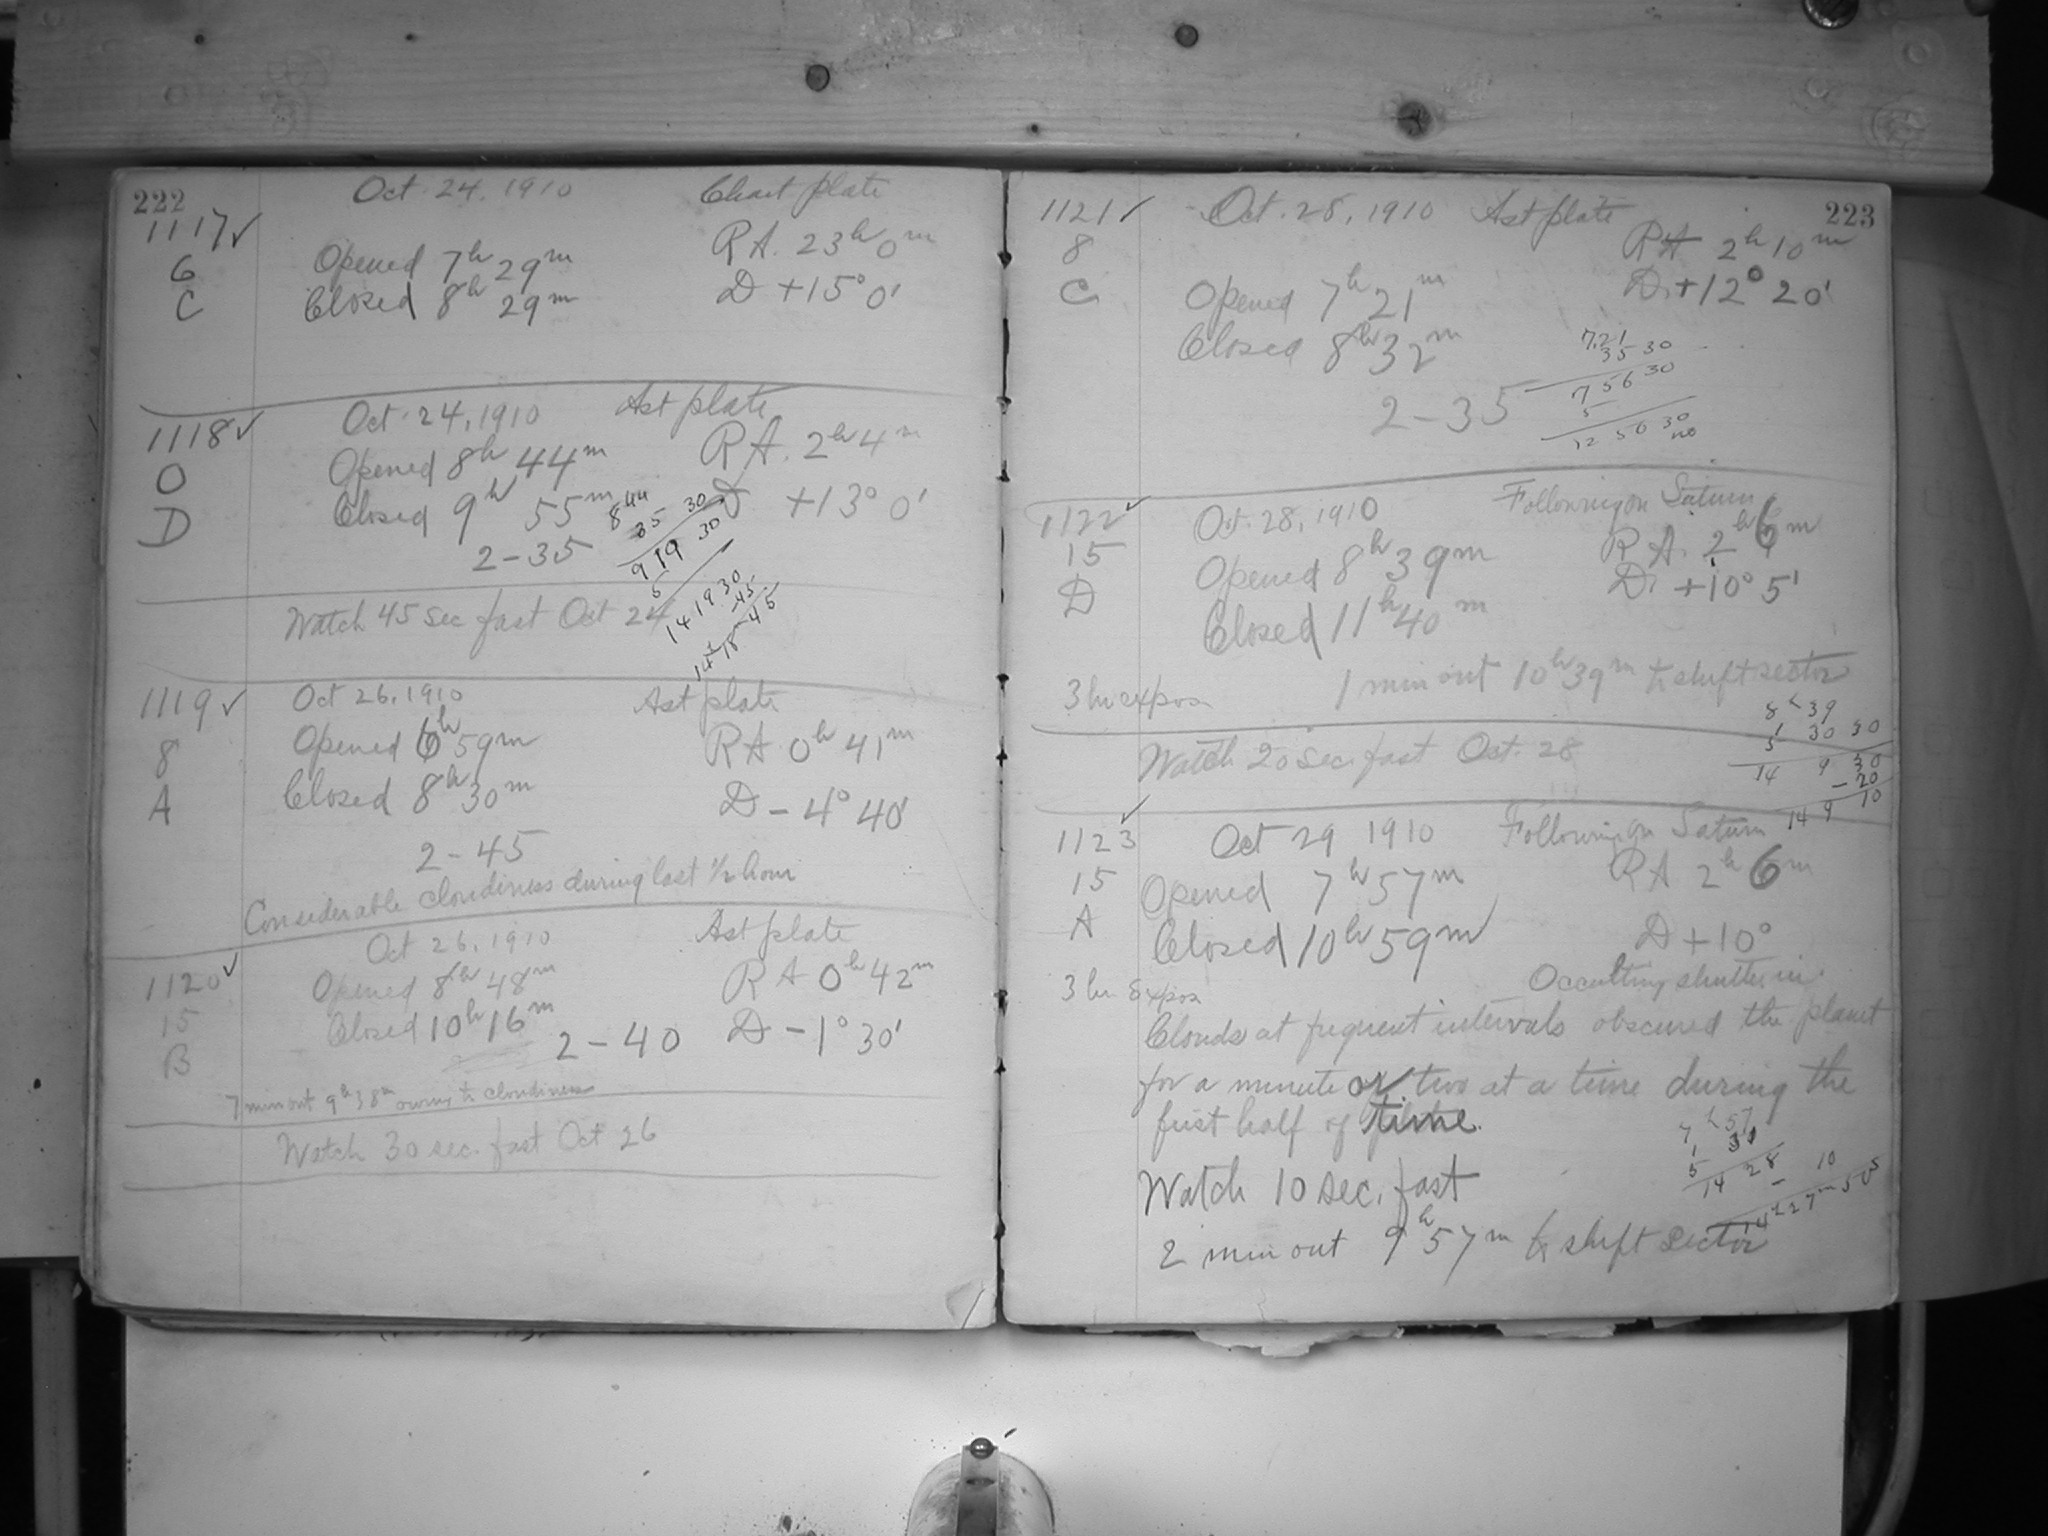 222
Oct. 24, 1910 Chart plate
1117✓
6
C
Opened 7h 29m RA. 23h 0m
Closed 8h 29m D +15° 0'
Oct. 24, 1910 Ast plate
1118✓
O
D
Opened 8h 44m RA. 2h 4m
Closed 9h 55m D +13° 0'
2-35
8 44
35 30
9 19 30
5
14 19 30
-45
14h 18m 45
Watch 45 sec fast Oct 24
1119✓
8
A
Oct 26, 1910 Ast plate
Opened 6h 59m RA 0h 41m
Closed 8h 30m D - 4° 40'
2-45
Considerable cloudiness during last 1/2 hour
Oct 26, 1910 Ast plate
1120✓
15
B
Opened 8h 48m RA 0h 42m
Closed 10h 16m D - 1° 30'
2-40
7 min out 9h 38m owing to cloudiness
Watch 30 sec. fast Oct 26
223
1121✓
8
C
Oct. 28, 1910 Ast plate
RA 2h 10m
Opened 7h 21m D. +12° 20'
Closed 8h 32m
2-35
7.21
35 30
7 56 30
5
12 56 30
1122✓
15
D
Oct. 28, 1910 Following on Saturn
Opened 8h 39m RA. 2h 6m
Closed 11h 40m D. +10° 5'
3 hr expos 1 min out 10h 39m to shift sector
8h 39
1 30 30
5
14 9 30
-20
14 9 10
Watch 20 sec. fast Oct. 28
1123✓
15
A
Oct 29 1910 Following on Saturn
Opened 7h 57m RA 2h 6m
Closed 10h 59m D +10°
3 hr expos Occulting shutter in
Clouds at frequent intervals obscured the planet
for a minute or two at a time during the
first half of time.
7h 57
1 31
5
14 28
- 10
14h 27m 50s
Watch 10 sec. fast
2 min out 9h 57m to shift sector